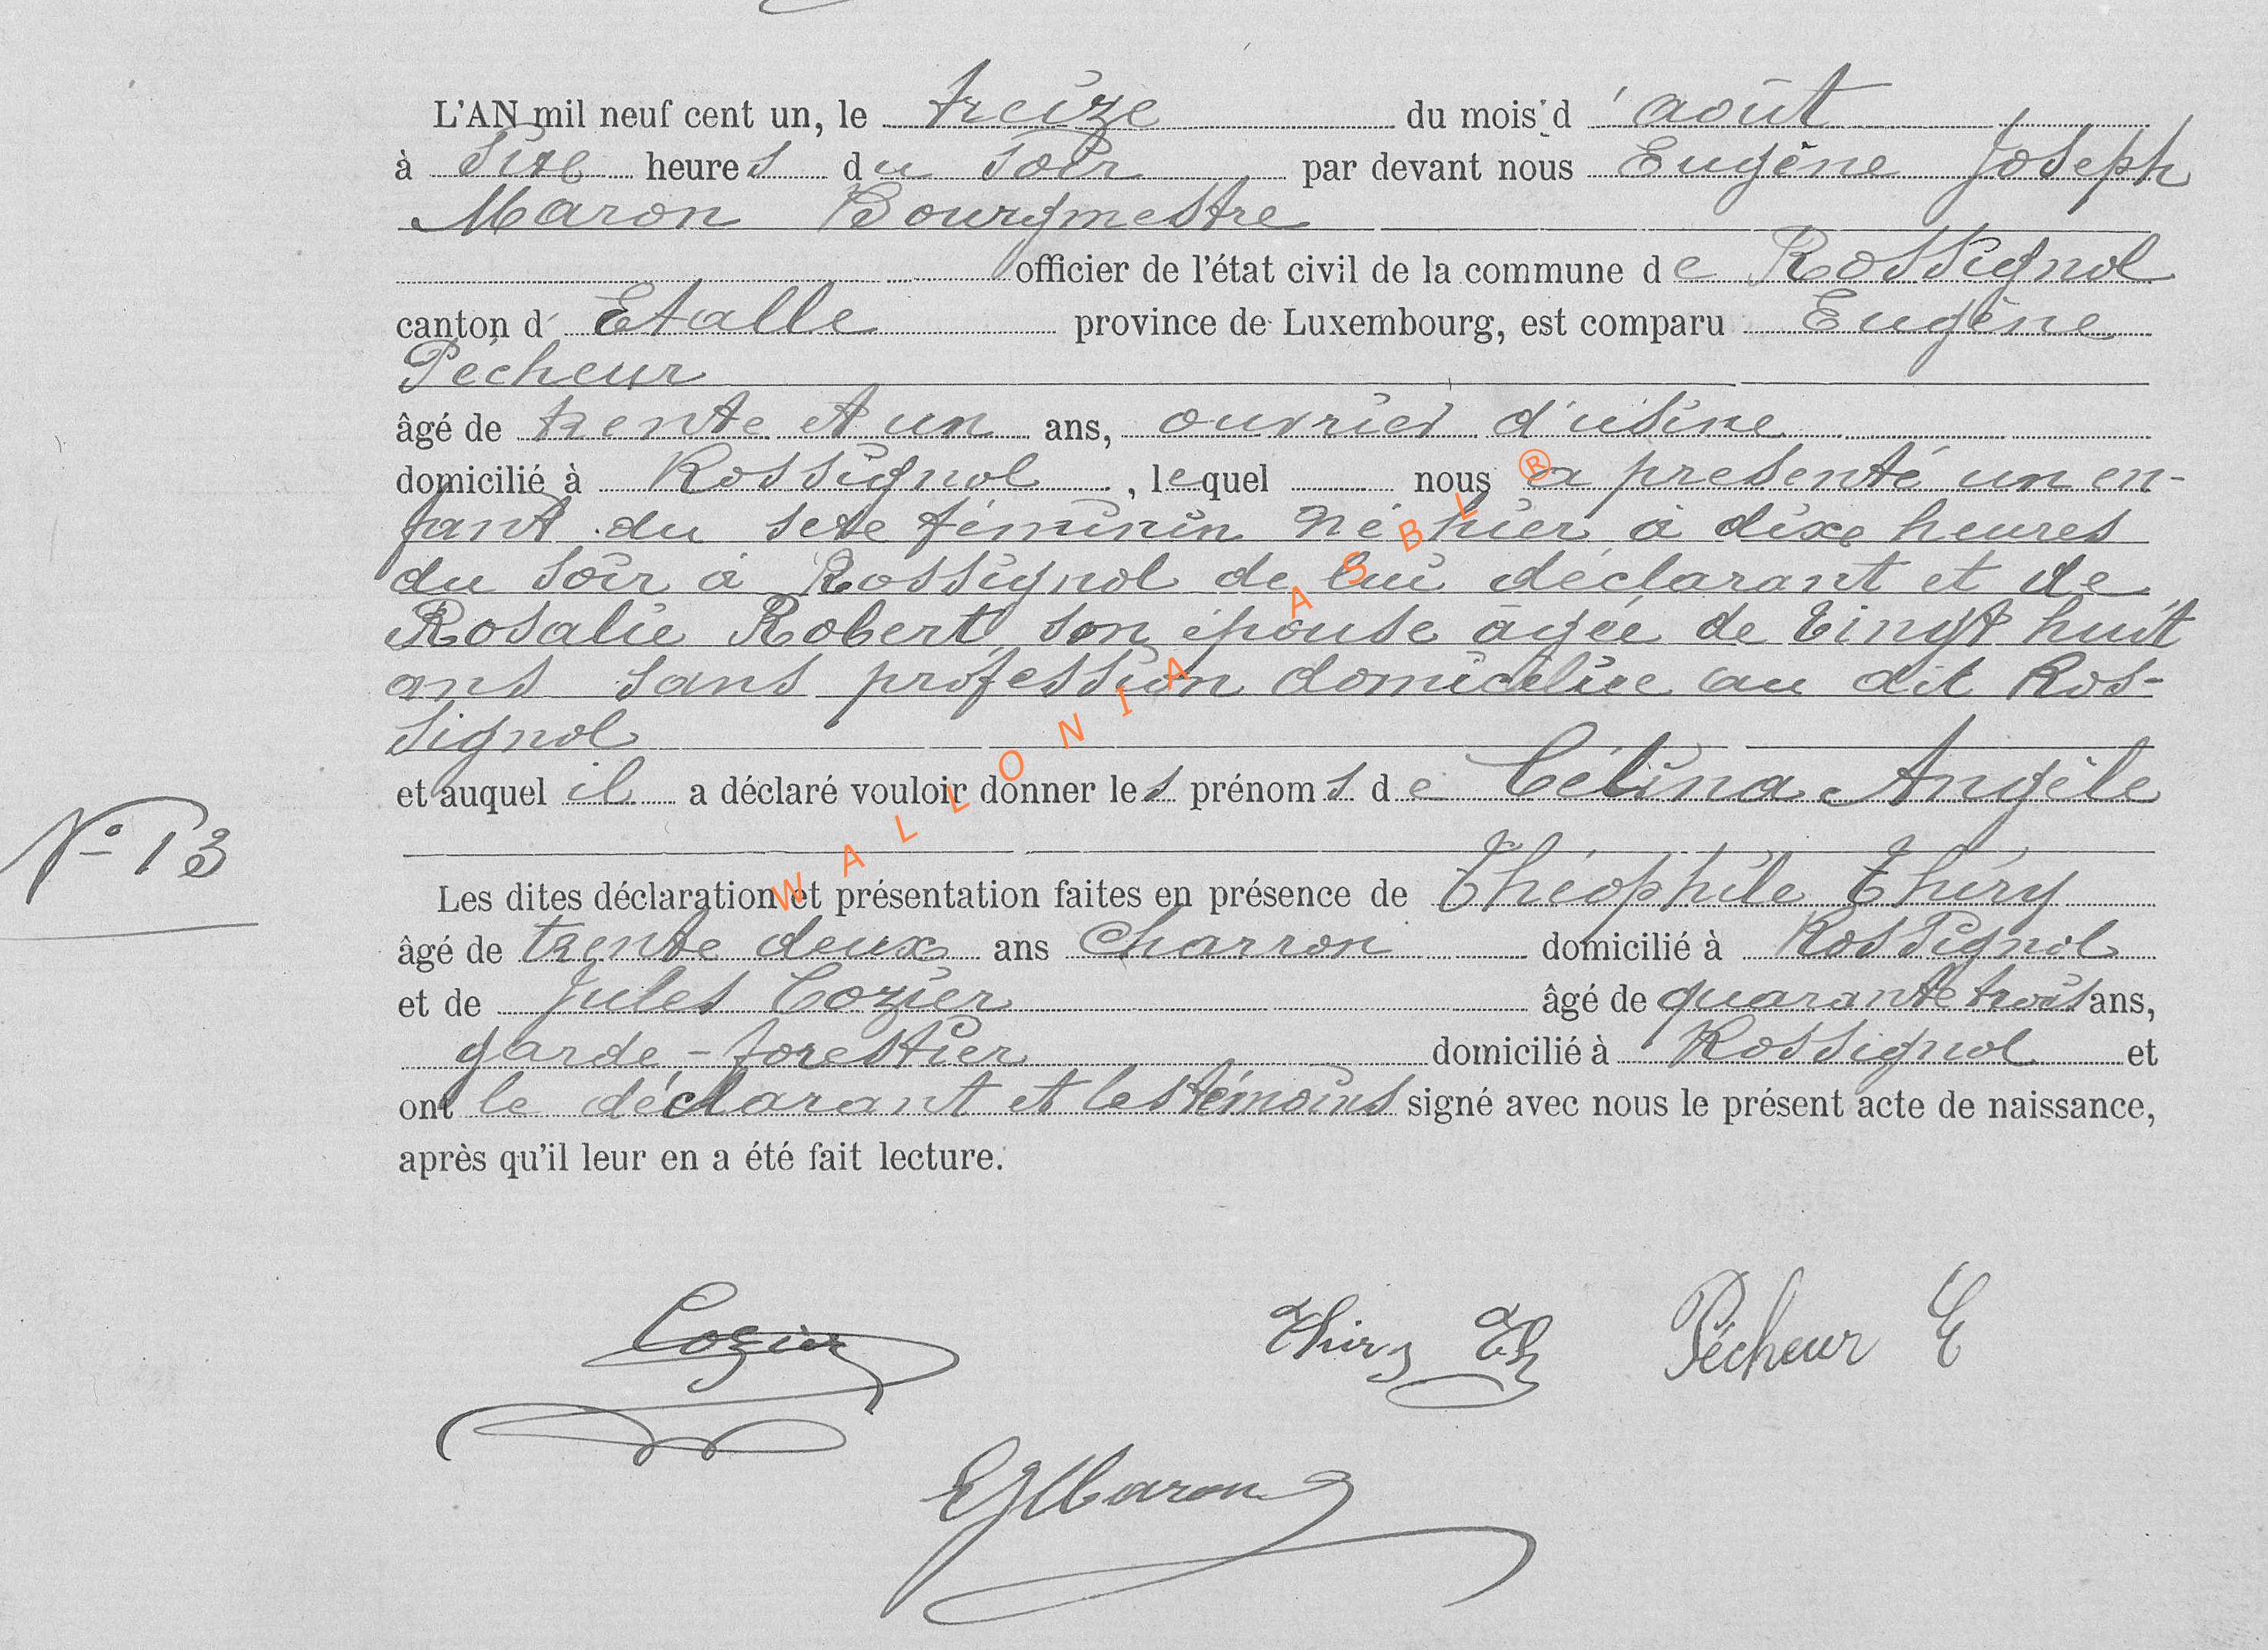 L'AN mil neuf cent un, le treize du mois d'août
à six heures du soir par devant nous Eugène Joseph
Maron Bourgmestre
officier de l'état civil de la commune de Rossignol
canton d'Etalle province de Luxembourg, est comparu Eugène
Pêcheur
âgé de trente et un ans, ouvrier d'usine
domicilié à Rossignol, lequel nous a présenté un en-
fant du sexe féminin né hier à dix heures
du soir à Rossignol de lui déclarant et de
Rosalie Robert son épouse âgée de vingt huit
ans sans profession domiciliée au dit Ros-
signol
et auquel il a déclaré vouloir donner les prénoms de Célina Angèle
N° 13
Les dites déclaration et présentation faites en présence de Théophile Thiry
âgé de trente deux ans charron domicilié à Rossignol
et de Jules Cozier âgé de quarante trois ans,
garde-forestier domicilié à Rossignol et
ont le déclarant et les témoins signé avec nous le présent acte de naissance,
après qu'il leur en a été fait lecture.
Cozier Thiry Th Pêcheur E
EJMaron
WALLONIA ASBL ®